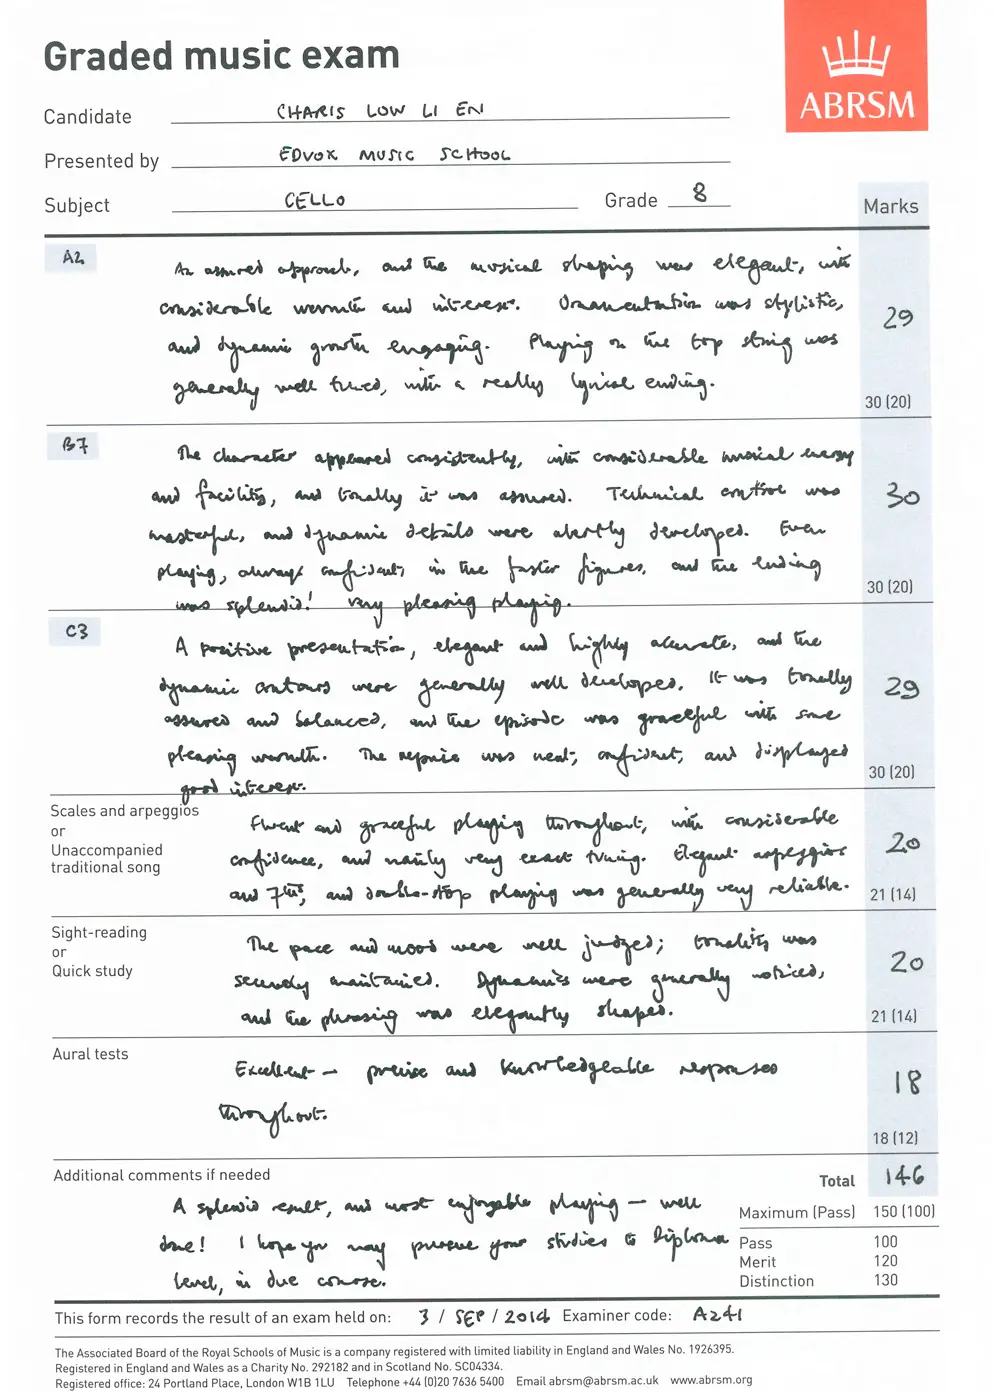 Graded music exam
ABRSM
Candidate CHARIS LOW LI EN
Presented by EDVOX MUSIC SCHOOL
Subject CELLO Grade 8
Marks
A2
An assured approach, and the musical shaping was elegant, with
considerable warmth and interest. Ornamentation was stylistic,
and dynamic growth engaging. Playing on the top string was
generally well tuned, with a really lyrical ending.
29
30 (20)
B7
The character appeared consistently, with considerable musical energy
and facility, and tonally it was assured. Technical control was
masterful, and dynamic details were alertly developed. Even
playing, always confident, in the faster figures, and the ending
was splendid! Very pleasing playing.
30
30 (20)
C3
A positive presentation, elegant and highly accurate, and the
dynamic contours were generally well developed. It was tonally
assured and balanced, and the episode was graceful with some
pleasing warmth. The reprise was neat, confident, and displayed
good interest.
29
30 (20)
Scales and arpeggios
or
Unaccompanied
traditional song
Fluent and graceful playing throughout, with considerable
confidence, and mainly very exact tuning. Elegant arpeggios
and 7ths, and double-stop playing was generally very reliable.
20
21 (14)
Sight-reading
or
Quick study
The pace and mood were well judged; tonality was
securely maintained. Dynamics were generally noticed,
and the phrasing was elegantly shaped.
20
21 (14)
Aural tests
Excellent - precise and knowledgeable responses
throughout.
18
18 (12)
Additional comments if needed
A splendid result, and most enjoyable playing - well
done! I hope you may pursue your studies to Diploma
level, in due course.
Total 146
Maximum (Pass) 150 (100)
Pass 100
Merit 120
Distinction 130
This form records the result of an exam held on: 3 / SEP / 2014 Examiner code: A241
The Associated Board of the Royal Schools of Music is a company registered with limited liability in England and Wales No. 1926395.
Registered in England and Wales as a Charity No. 292182 and in Scotland No. SC04334.
Registered office: 24 Portland Place, London W1B 1LU Telephone +44 (0)20 7636 5400 Email abrsm@abrsm.ac.uk www.abrsm.org